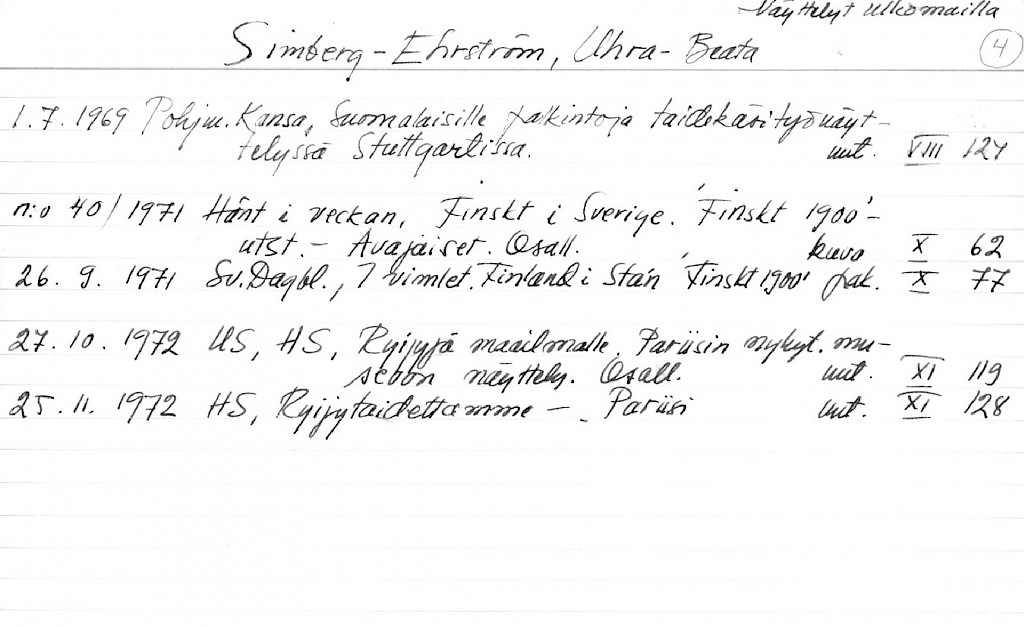 Näyttelyt ulkomailla
Simberg-Ehrström, Uhra-Beata 4
1.7.1969 Pohjm. Kansa, Suomalaisille palkintoja taidekäsityönäyt-
telyssä Stuttgartissa. uut. VIII 127
n:o 40/1971 Hänt i veckan, Finskt i Sverige. 'Finskt 1900'-
utst. - Avajaiset. Osall. kuva X 62
26.9.1971 Sv. Dagbl., I vimlet. Finland i Stan 'Finskt 1900' pak. X 77
27.10.1972 US, HS, Ryijyjä maailmalle. Pariisin nykyt. mu-
seoon näyttely. Osall. uut. XI 119
25.11.1972 HS, Ryijytaidettamme - Pariisi uut. XI 128